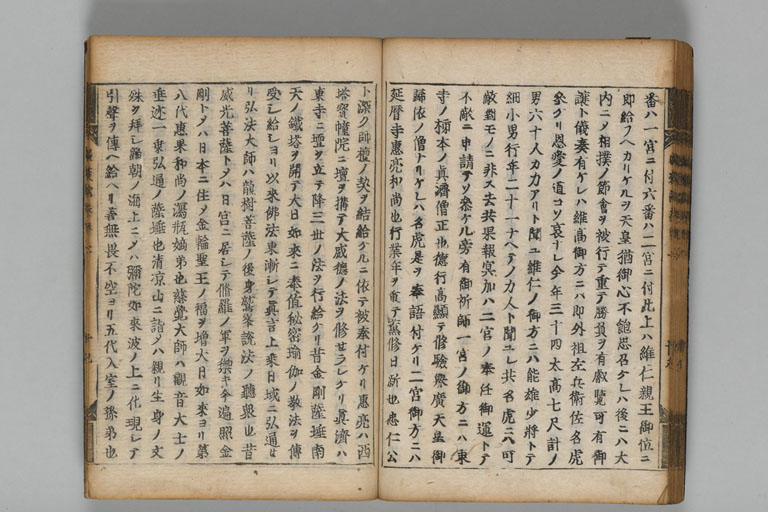 番ハ一宮ニ付六番ハ二宮ニ付此上ハ維仁親王御位ニ
即給フヘカリケルヲ天皇猶御心不飽思召ケレハ後ニハ大
内ニメ相撲ノ節會ヲ被行テ重テ勝負ヲ有叡覧可有御
譲ト儀奏有ケレハ維高御方ニハ即外祖左兵衛佐名虎
参ケリ恩愛ノ道コソ哀ナレ今年三十四太高七尺計ノ
男六十人カ力アリト聞ユ維仁ノ御方ニハ能雄少将トテ
細小男行年二十一ナヘテノ力人ト聞ユレ共名虎ニハ可
敵對モノニ非ス去共果報冥加ハ二宮ノ奉任御運トテ
不敵ニ申請テソ参ケル旁有御祈師一宮ノ御方ニハ東
寺ノ柿本ノ眞濟僧正也徳行高顯テ修驗県廣天皇御
歸依ノ僧ナリケレハ名虎是ヲ奉語付ケリ二宮御方ニハ
延暦寺惠亮和尚也行業年ヲ重テ薫修日新也忠仁公
ト深ク師檀ノ契ヲ結給ケルニ依テ被奉付ケリ惠亮ハ西
塔寳幢院ニ壇ヲ搆テ大威徳ノ法ヲ修セラレケリ眞濟ハ
東寺ニ壇ヲ立テ降三世ノ法ヲ行給ケリ昔金剛薩埵南
天ノ鐵塔ヲ開テ大日如來ニ奉値秘密瑜伽ノ教法ヲ傳
受シ給シヨリ以來佛法東漸シテ眞言上乗日域ニ弘通セ
リ弘法大師ハ龍樹菩薩ノ後身鷲峯説法ノ聽衆也昔
威光菩薩トメハ日宮ニ居シテ脩羅ノ軍ヲ禦キ今遍照金
剛トメハ日本ニ住メ金輪聖王ノ福ヲ増大日如來ヨリ第
八代惠果和尚ノ瀉瓶嫡弟也慈覺大師ハ觀音大士ノ
垂迹一乗弘通ノ薩埵也清凉山ニ詣メハ親リ生身ノ文
殊ヲ拜シ歸朝ノ海上ニメハ彌陀如來波ノ上ニ化現シテ
引聲ヲ傳ヘ給ヘリ善無畏不空ヨリ五代入室ノ孫弟也